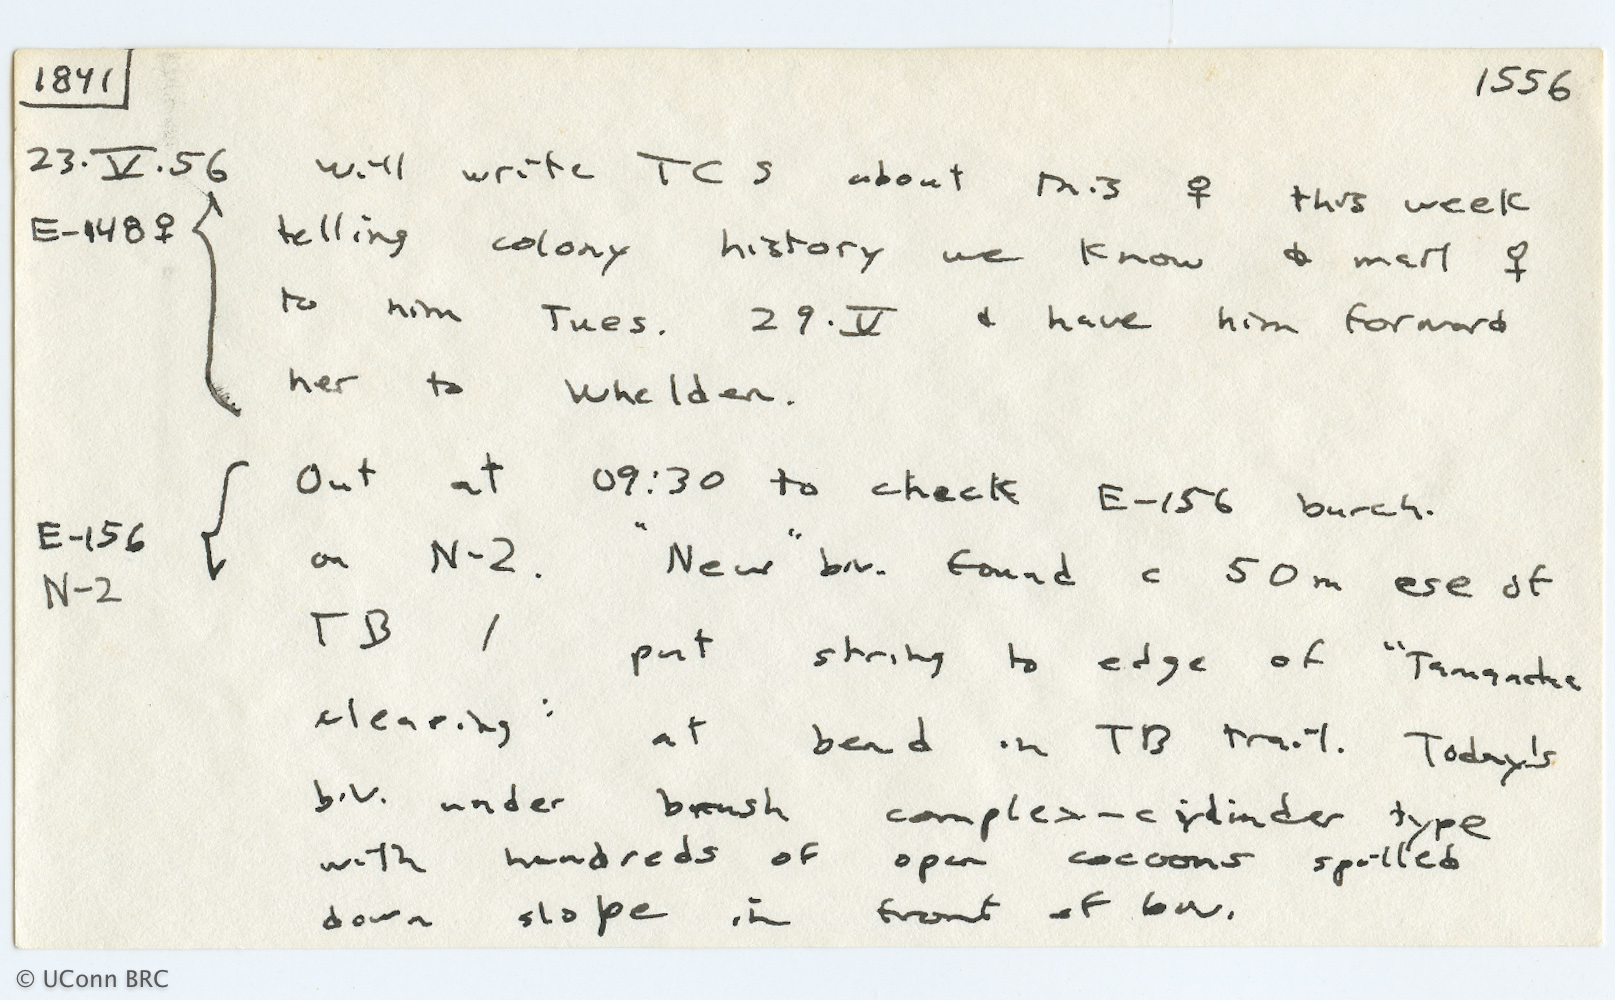 1841 1556
23.V.56 will write TCS about this ♀ this week
E-148♀ telling colony history we know & mail ♀
to him Tues. 29.V & have him forward
her to Whelden.
Out at 09:30 to check E-156 burch.
E-156 on N-2. "New" biv. found c 50m ese of
N-2
TB / put string to edge of "Tamandua
clearing" at bend in TB trail. Today's
biv. under brush complex-cylinder type
with hundreds of open cocoons spilled
down slope in front of biv.
© UConn BRC